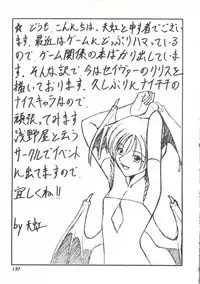 ☆ どうも こんちは、天虹と申す者でござい
ます。最近はゲームにどっぷりハマっている
ので ゲーム関係の本ばかり出していま
す。そんな訳で 今はセイヴァーのリリスを
描いております。久しぶりにナイチチの
ナイスキャラなので
頑張ってみます
浅野屋と云う
サークルでイベント
に出てますので、
宜しくね!!
by 天虹